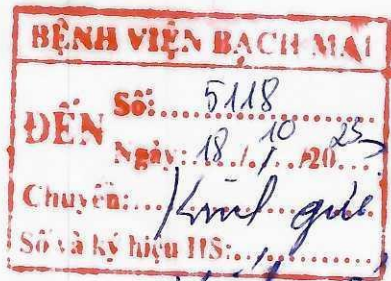 BỆNH VIỆN BẠCH MAI
ĐẾN
Số: 5118
Ngày: 18/10/2023
Chuyển: Kính gửi
Số và ký hiệu HS: